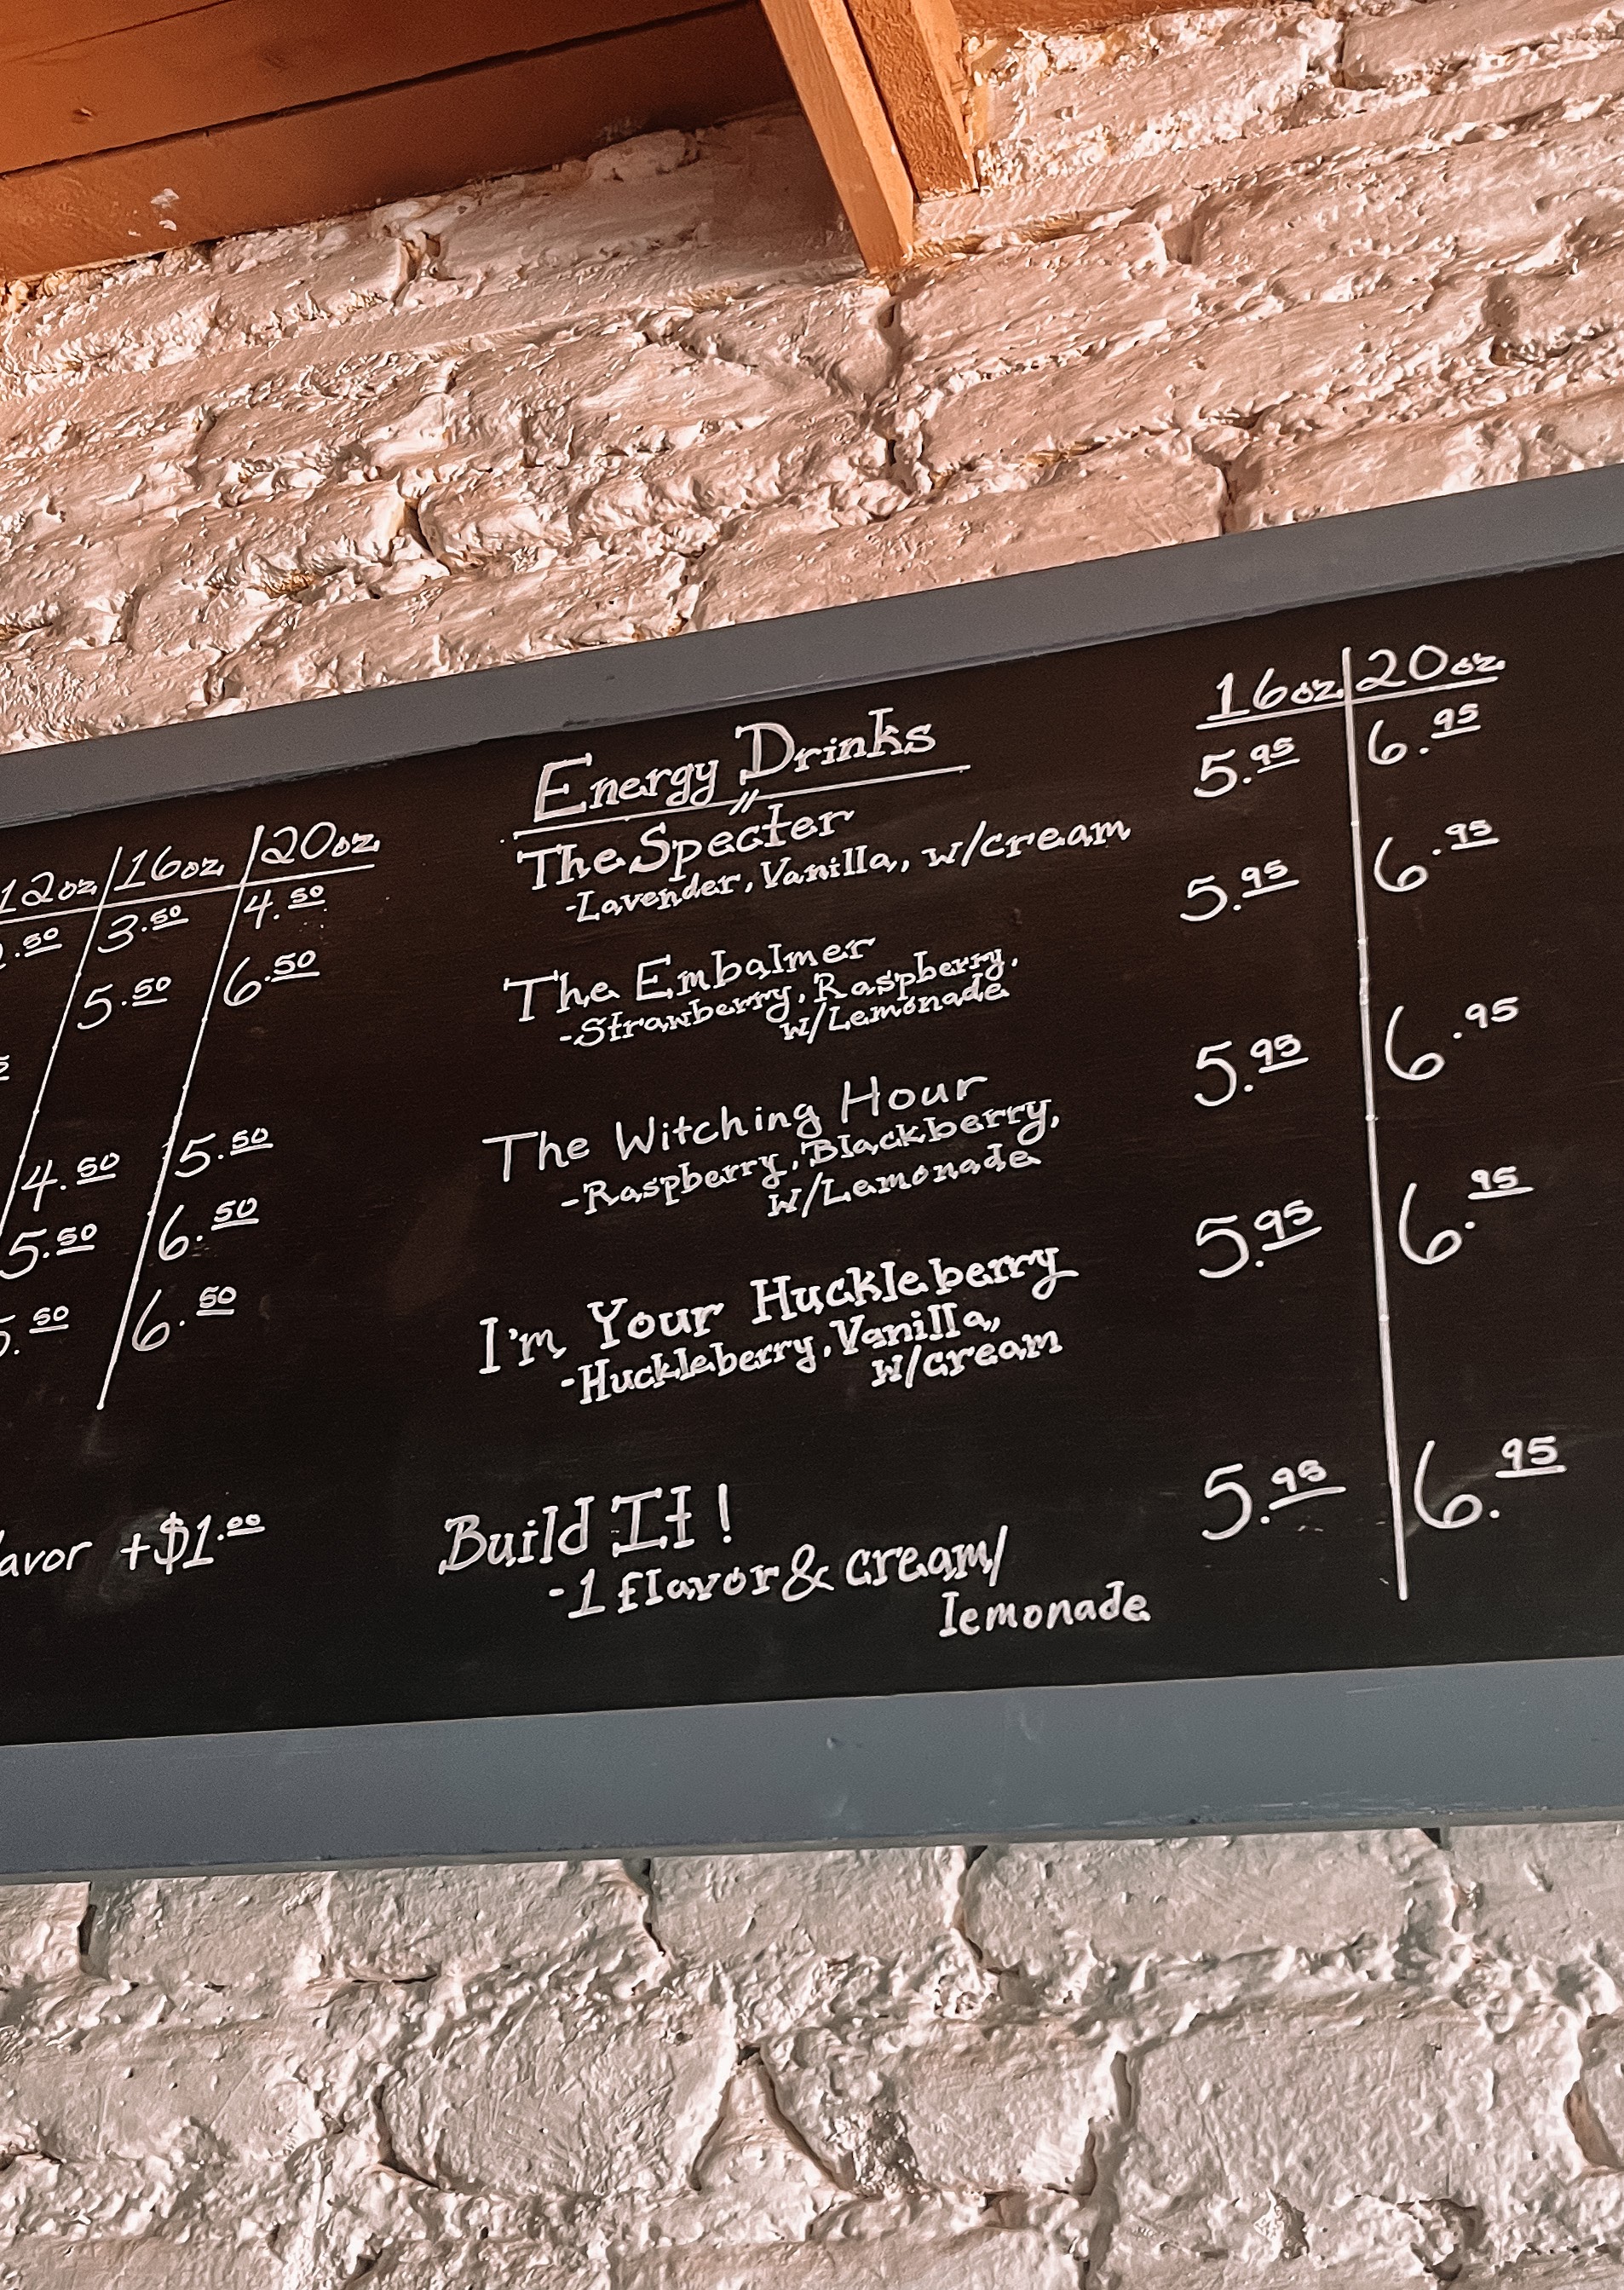 12oz 16oz 20oz
.50 3.50 4.50
5.50 6.50
4.50 5.50
5.50 6.50
.50 6.50
+$1.00
Energy Drinks
16oz 20oz
The Specter 5.95 6.95
-Lavender, Vanilla, w/cream
The Embalmer 5.95 6.95
-Strawberry, Raspberry,
w/Lemonade
The Witching Hour 5.95 6.95
-Raspberry, Blackberry,
w/Lemonade
I'm Your Huckleberry 5.95 6.95
-Huckleberry, Vanilla,
w/cream
Build It! 5.95 6.95
-1 flavor & cream/
lemonade